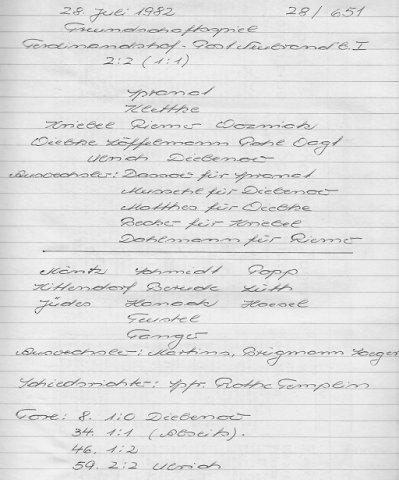 28. Juli 1982 28/651
Freundschaftsspiel
Ferdinandshof - Post Neubrandb. I
2:2 (1:1)
Spranat
Klettke
Kniebel Riemer Wozniak
Wiebke Löffelmann Rohl Vagt
Ulrich Diebenow
Auswechsler: für Spranat
für Diebenow
Matthes für
Becker für Kniebel
Dahlmann für Riemer
Schmidt Popp
Hittendorf Lüth
Jüdes Haack
Feustel
Auswechsler: Martins, Brügmann
Schiedsrichter: Spfr. Rothe Templin
Tore: 8. 1:0 Diebenow
34. 1:1 (Abseits).
46. 1:2
59. 2:2 Ulrich